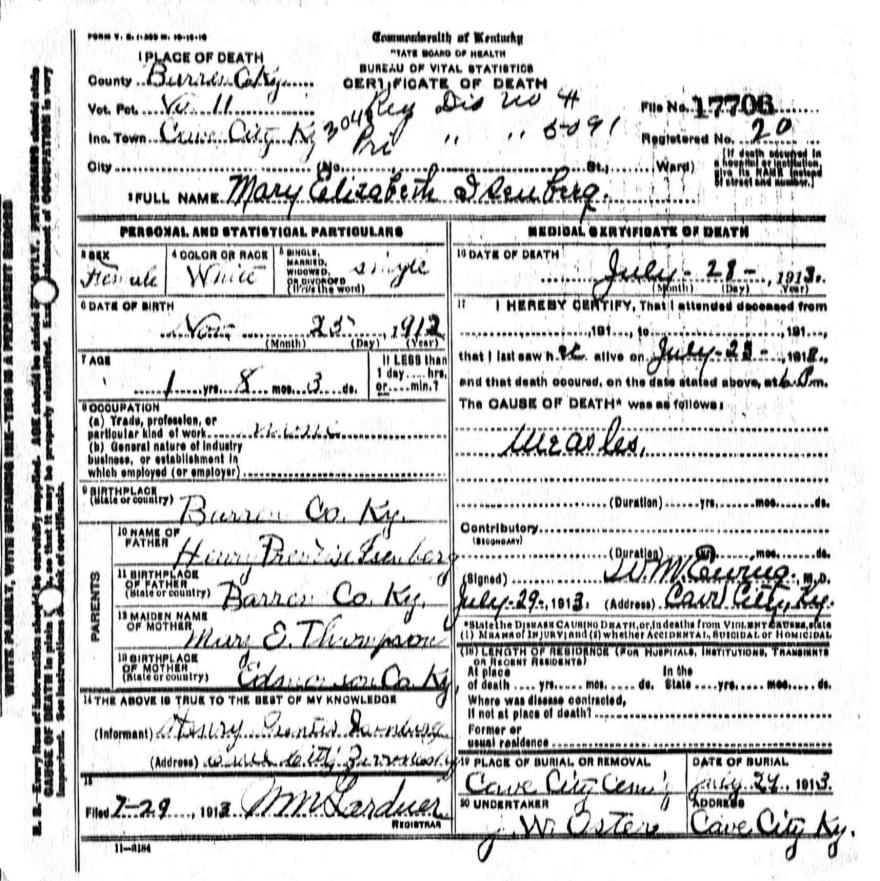 FORM V. S. 1-
Commonwealth of Kentucky
STATE BOARD OF HEALTH
BUREAU OF VITAL STATISTICS
CERTIFICATE OF DEATH
1 PLACE OF DEATH
County Barren Co Ky.
Vot. Pct. No 11
Inc. Town Cave City Ky
City (No. St., Ward)
Reg Dis no 4
Pri " " 5091
File No. 17706
Registered No. 20
[If death occurred in a hospital or institution, give its NAME instead of street and number.]
2 FULL NAME Mary Elizabeth Isenberg.
PERSONAL AND STATISTICAL PARTICULARS
3 SEX
Female
4 COLOR OR RACE
White
5 SINGLE, MARRIED, WIDOWED, OR DIVORCED (Write the word)
single
6 DATE OF BIRTH
Nov. 25 1912
(Month) (Day) (Year)
7 AGE
1 yrs. 8 mos. 3 ds.
If LESS than 1 day .... hrs. or .... min.?
8 OCCUPATION
(a) Trade, profession, or particular kind of work none
(b) General nature of industry business, or establishment in which employed (or employer)
9 BIRTHPLACE
(State or country)
Barren Co. Ky.
PARENTS
10 NAME OF FATHER
Henry Prentise Isenberg
11 BIRTHPLACE OF FATHER
(State or country) Barren Co. Ky.
12 MAIDEN NAME OF MOTHER
Mary E. Thompson
13 BIRTHPLACE OF MOTHER
(State or country) Edmonson Co. Ky.
14 THE ABOVE IS TRUE TO THE BEST OF MY KNOWLEDGE
(Informant) Henry Prentis Isenberg
(Address)
15
Filed 7-29, 1913 Wm Gardner
REGISTRAR
11-3184
MEDICAL CERTIFICATE OF DEATH
16 DATE OF DEATH
July - 28 -, 1913.
(Month) (Day) (Year)
17 I HEREBY CERTIFY, That I attended deceased from
, 191 , to , 191 ,
that I last saw her alive on July - 28 -, 191 ,
and that death occured, on the date stated above, at 6 P.m.
The CAUSE OF DEATH* was as follows:
Measles.
(Duration) yrs. mos. ds.
Contributory
(SECONDARY)
(Duration) yrs. mos. ds.
(Signed) W. M. Ewing, M.D.
July-29-, 1913. (Address) Cave City, Ky.
*State the DISEASE CAUSING DEATH, or, in deaths from VIOLENT CAUSES, state (1) MEANS OF INJURY; and (2) whether ACCIDENTAL, SUICIDAL or HOMICIDAL
(18) LENGTH OF RESIDENCE (FOR HOSPITALS, INSTITUTIONS, TRANSIENTS OR RECENT RESIDENTS)
At place of death .... yrs. .... mos. .... ds. In the State .... yrs. .... mos. .... ds.
Where was disease contracted, if not at place of death?
Former or usual residence
19 PLACE OF BURIAL OR REMOVAL
Cave City Cem'y
DATE OF BURIAL
July 29, 1913.
20 UNDERTAKER
J. W. Oster
ADDRESS
Cave City Ky.